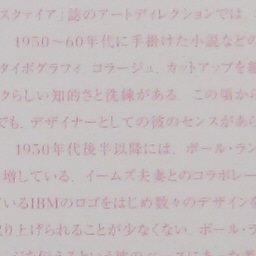 スクァイア」誌のアートディレクションでは、
1950〜60年代に手掛けた小説などの
タイポグラフィ、コラージュ、カットアップを
クらしい知的さと洗練がある。この頃から
でも、デザイナーとしての彼のセンスがあら
1950年代後半以降には、ポール・ラン
増している。イームズ夫妻とのコラボレー
いるIBMのロゴをはじめ数々のデザインを
取り上げられることが少なくない。ポール・ラ